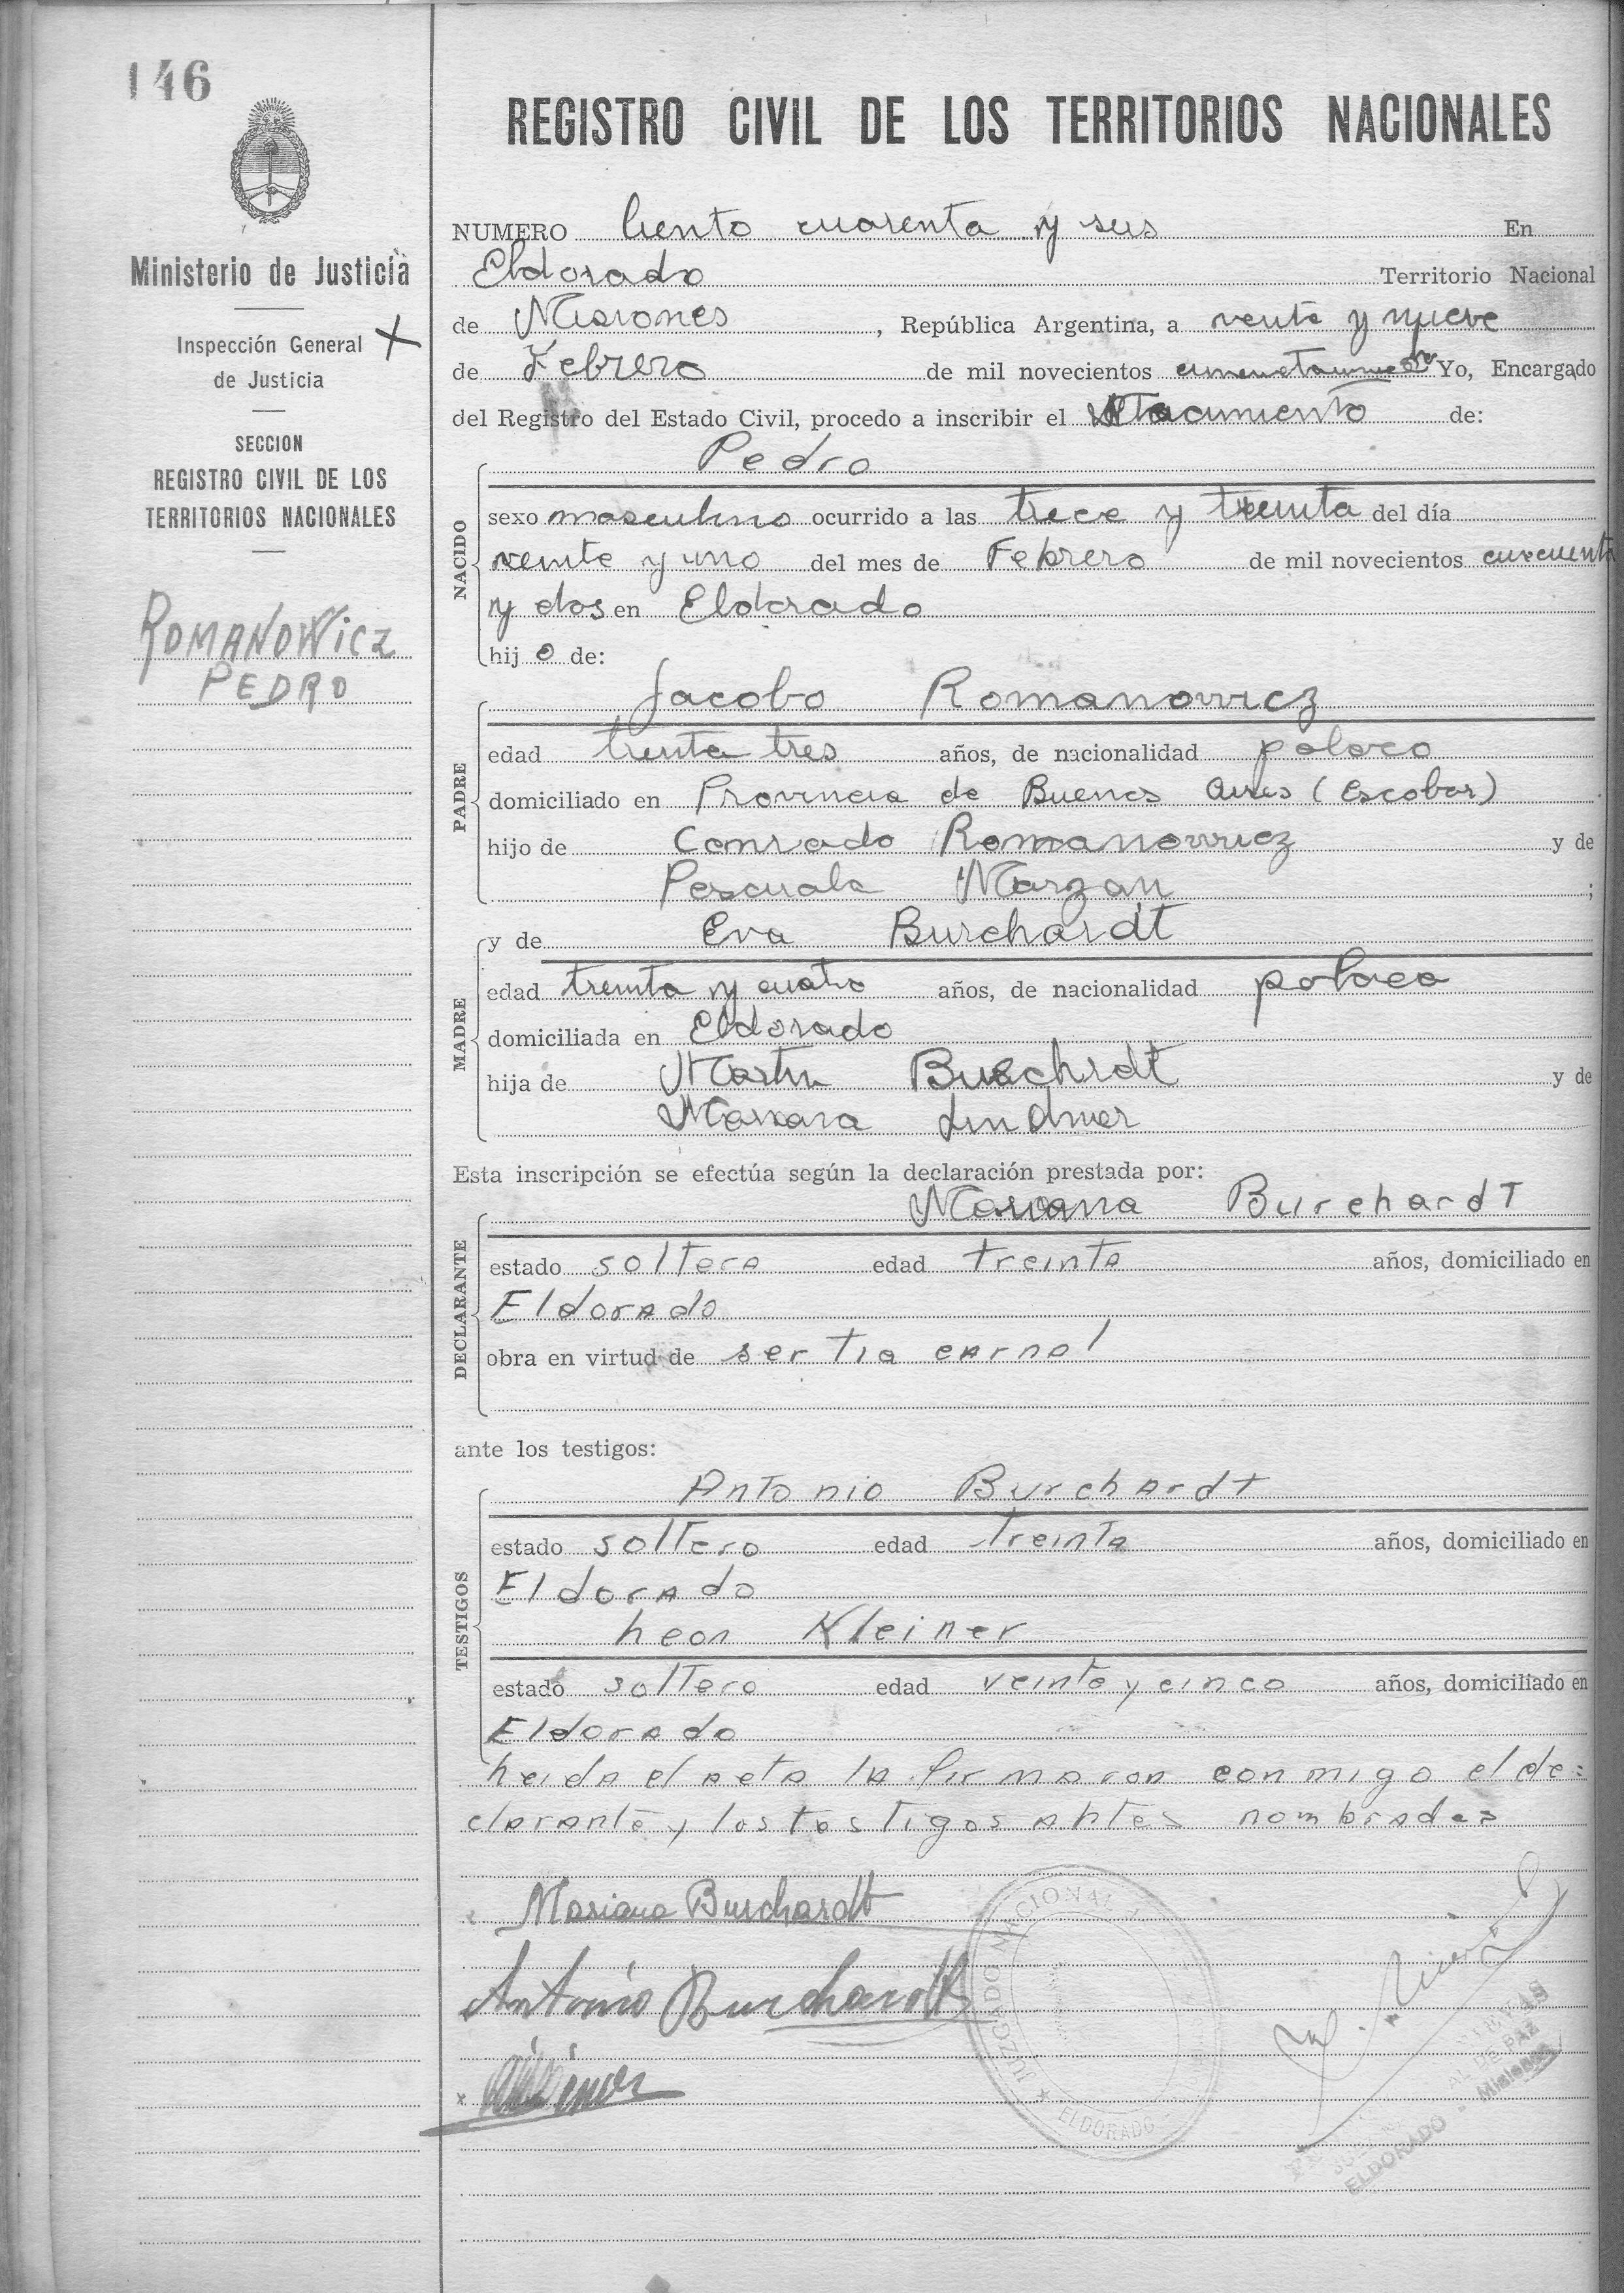 146
REGISTRO CIVIL DE LOS TERRITORIOS NACIONALES
Ministerio de Justicia
Inspección General X
de Justicia
SECCION
REGISTRO CIVIL DE LOS
TERRITORIOS NACIONALES
ROMANOWICZ
PEDRO
NUMERO Ciento cuarenta y seis En
Eldorado Territorio Nacional
de Misiones, República Argentina, a veinte y nueve
de Febrero de mil novecientos Yo, Encargado
del Registro del Estado Civil, procedo a inscribir el Nacimiento de:
Pedro
NACIDO
sexo masculino ocurrido a las trece y treinta del día
veinte y uno del mes de Febrero de mil novecientos cincuenta
y dos en Eldorado
hijo de:
Jacobo Romanowicz
PADRE
edad trenta tres años, de nacionalidad polaco
domiciliado en Provincia de Buenos Aires (Escobar)
hijo de Conrado Romanowicz y de
Pascuala Marzan;
y de Eva Burchardt
MADRE
edad treinta y cuatro años, de nacionalidad polaca
domiciliada en Eldorado
hija de Martin Burchrdt y de
Mariana Lindner
Esta inscripción se efectúa según la declaración prestada por:
Mariana Burchardt
DECLARANTE
estado soltera edad treinta años, domiciliado en
Eldorado
obra en virtud de ser tia carnal
ante los testigos:
Antonio Burchardt
TESTIGOS
estado soltero edad treinta años, domiciliado en
Eldorado
Leon Kleiner
estado soltero edad veinte y cinco años, domiciliado en
Eldorado
Leida el acta la firmaron conmigo el de=
clarante y los testigos antes nombrados
Mariana Burchardt
Antonio Burchardt
JUZGADO NACIONAL
ELDORADO
AL DE PAZ
ELDORADO - Misiones